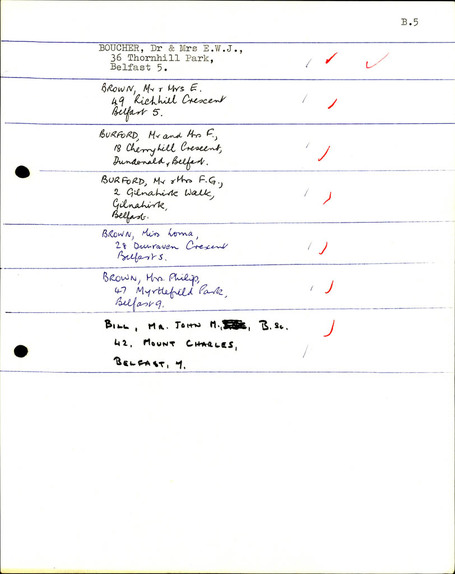 B.5
BOUCHER, Dr & Mrs E.W.J.,
36 Thornhill Park,
Belfast 5.
BROWN, Mr & Mrs E.
49 Richhill Crescent
Belfast 5.
BURFORD, Mr and Mrs F.,
18 Cherryhill Crescent,
Dundonald, Belfast.
BURFORD, Mr & Mrs F.G.,
2 Gilnahirk Walk,
Gilnahirk,
Belfast.
BROWN, Miss Lorna,
28 Dunraven Crescent
Belfast 5.
BROWN, Mrs. Philip,
47 Myrtlefield Park,
Belfast 9.
BILL, MR. JOHN M., B.Sc.
42, MOUNT CHARLES,
BELFAST, 7.